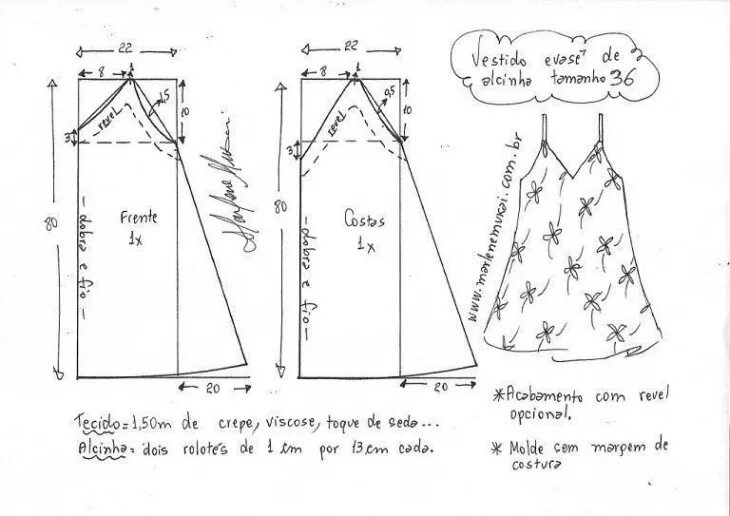 Vestido evasê de
alcinha tamanho 36
22
8
1
1,5
10
revel
3
80
Frente
1x
- dobra e fio -
20
Marlene Mukai
22
8
1
0,5
10
revel
3
80
Costas
1x
- dobra e fio -
20
www.marlenemukai.com.br
Tecido = 1,50m de crepe, viscose, toque de seda...
Alcinha = dois rolotês de 1 cm por 13 cm cada.
* Acabamento com revel
opcional.
* Molde sem margem de
costura